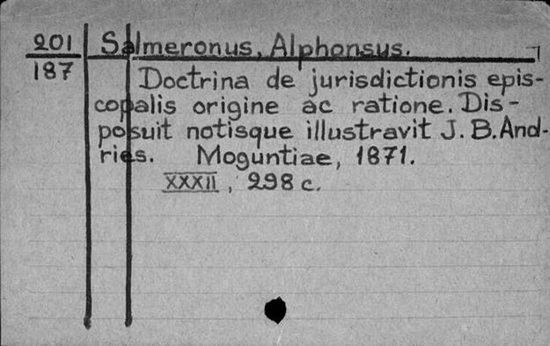 201 Salmeronus, Alphonsus.
187 Doctrina de jurisdictionis epis-
copalis origine ac ratione. Dis-
posuit notisque illustravit J. B. And-
ries. Moguntiae, 1871.
XXXII, 298 c.